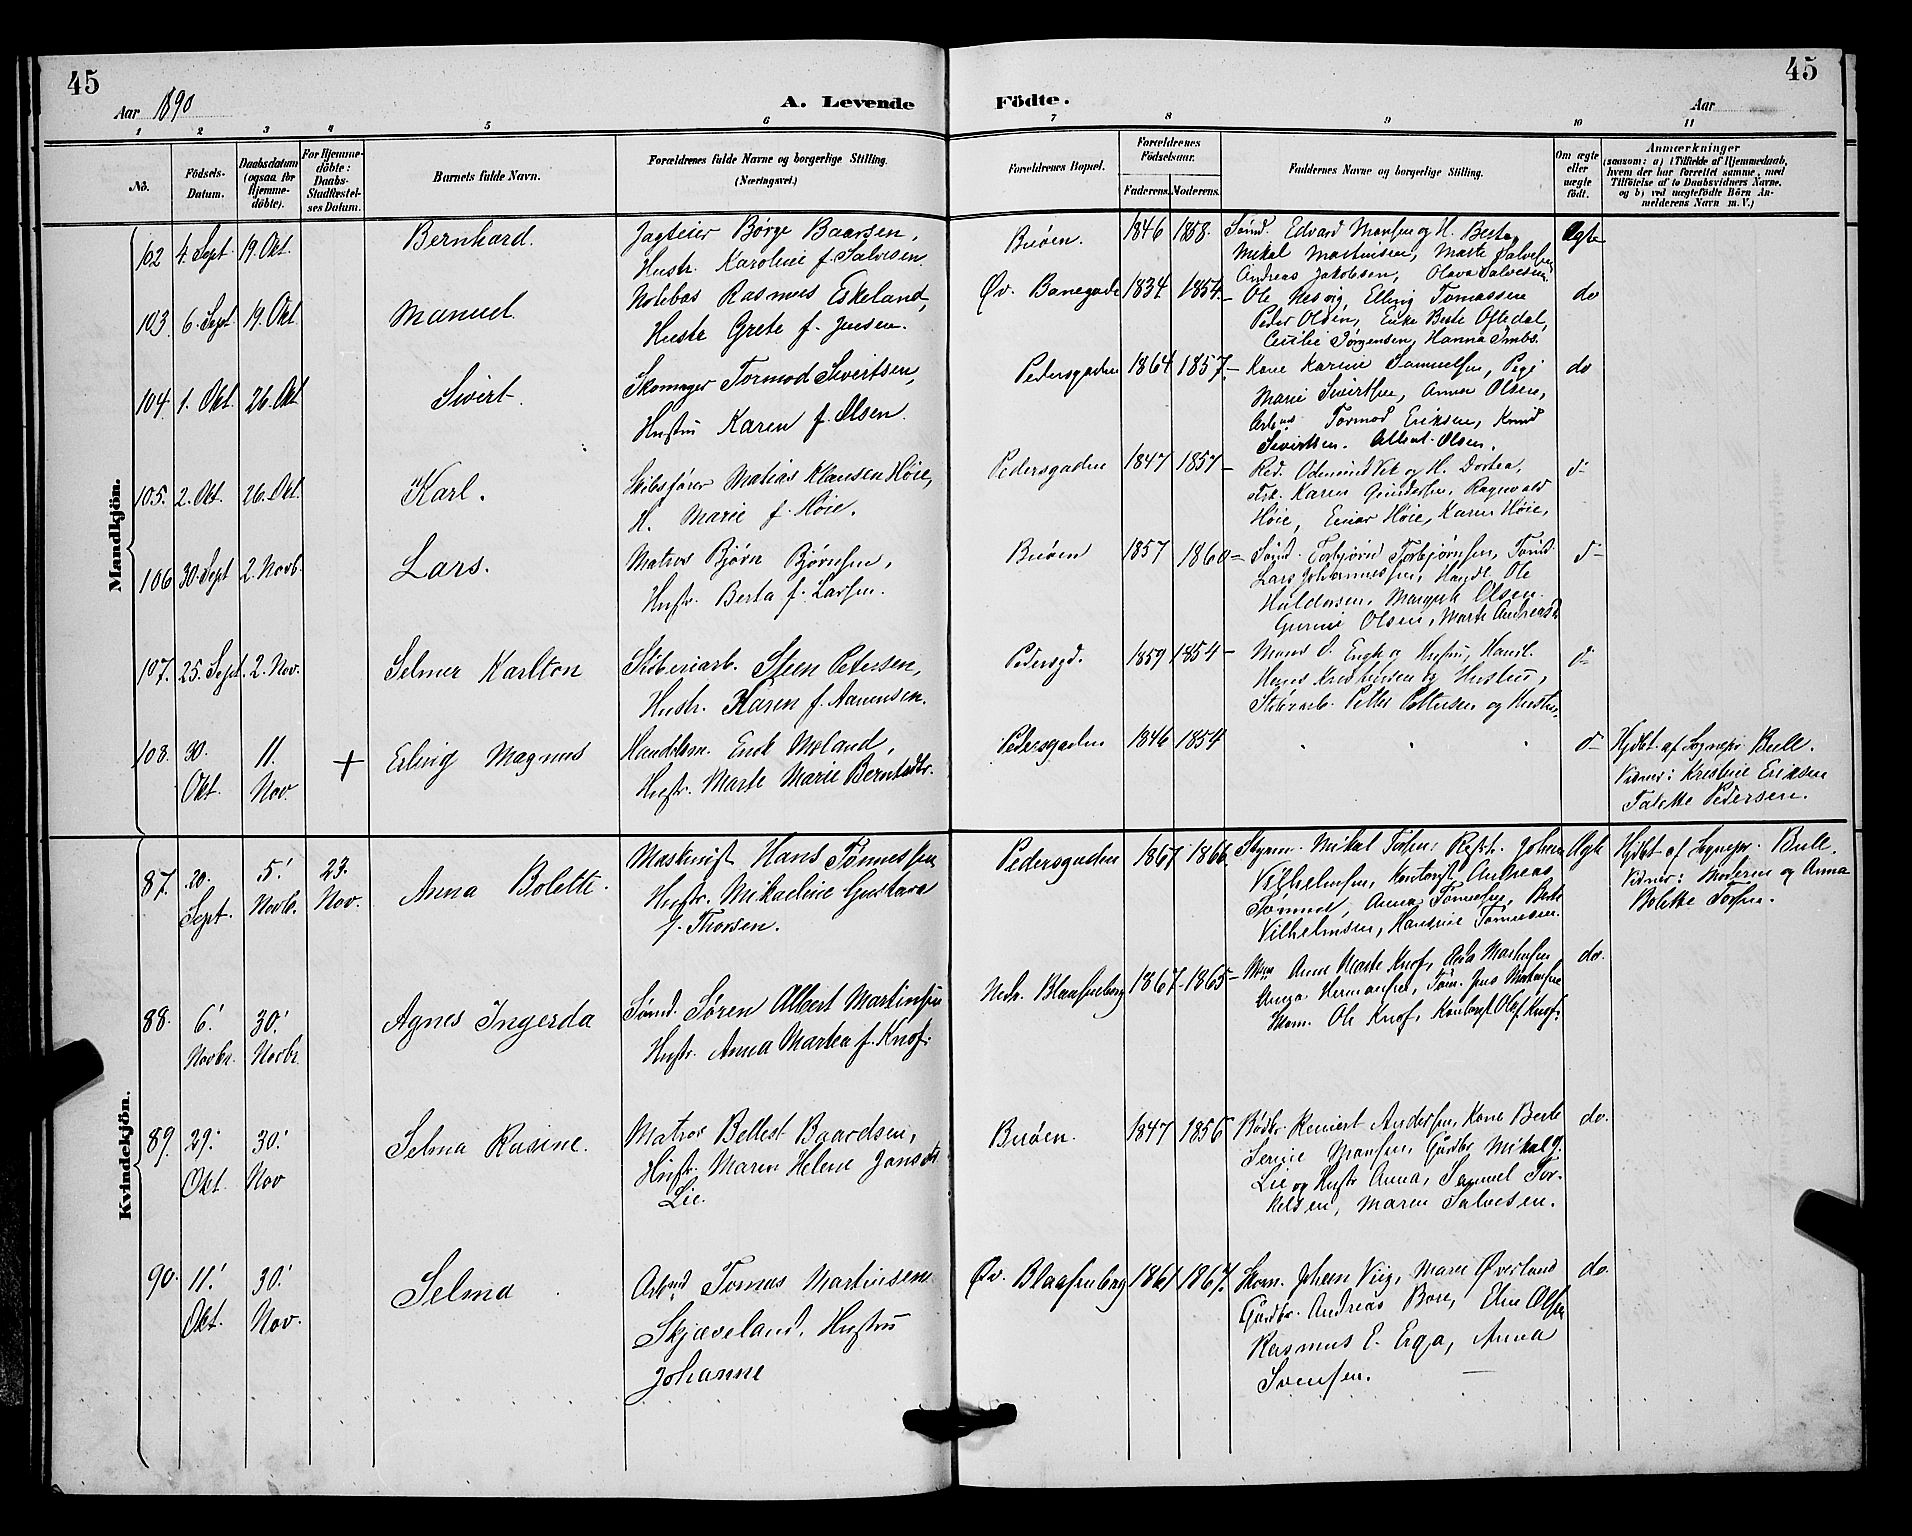 45
45
Aar 1890
A. Levende
Födte.
Aar
1 2 3 4 5 6 7 8 9 10 11
No.
Födsels-
Datum.
Daabsdatum
(ogsaa for
Hjemme-
döbte).
For Hjemme-
döbte:
Daabs-
Stadfæstel-
ses Datum.
Barnets fulde Navn.
Forældrenes fulde Navne og borgerlige Stilling.
(Næringsvei.)
Forældrenes Bopæl.
Forældrenes
Födselsaar.
Faderens.
Moderens.
Faddernes Navne og borgerlige Stilling.
Om ægte
eller
uægte
födt.
Anmærkninger
(saasom: a) i Tilfælde af Hjemmedaab,
hvem der har forrettet samme, med
Tilföielse af to Daabsvidners Navne,
og b) ved uægtefödte Börn An-
melderens Navn m. V.)
Mandkjön.
102 4. Sept. 19. Okt. Bernhard.
Jagteier Börge Baarsen,
Hustr. Karoline f. Salvesen.
Buöen. 1846 1858.
Sömd. Edvard Monsen og H. Berta,
Mikal Martinsen, Marte Salvesen
Andreas Jakobsen, Olava Salvesen
Ægte
103. 6. Sept 19. Okt. Manuel.
Notebas Rasmus Eskeland,
Hustr Grete f. Jensen.
Øv. Banegade 1834 1854
Ole Nesvig, Elling Tomassen
Peder Olsen, Enke Berte Oftedal,
Cecilie Jørgensen, Hanna Imbs.
do
104. 1. Okt. 26. Okt Sivert.
Skomager Tormod Sivertsen,
Hustru Karen f. Olsen.
Pedersgaden 1864 1857
Kone Karine Samuelsen, Pige
Marie Sivertsen, Anna Olsen,
Arbmd Tormod Eriksen, Knud
Sivertsen. Albert Olsen.
do
105. 2. Okt. 26. Okt. Karl.
Skibsfører Matias Klausen Höie,
H. Marie f. Höie.
Pedersgaden 1847 1857
Red. Odmund Vik og H. Dortea,
Frk. Karen Gundersen, Ragnvald
Höie, Einar Höie, Karen Höie,
d-
106 30. Sept 2. Novb. Lars.
Matros Bjørn Bjørnsen,
Hustr. Berta f. Larsen.
Buöen 1857 1860
Sömd. Torbjørn Torbjørnsen, Tömd.
Lars Johannessen, Handl. Ole
Huldersen, Margrete Olsen.
Gurine Olsen, Marte Andreasd.
d-
107. 25. Sept. 2. Nov. Selmer Karlton
Støberiarb. Steen Petersen,
Hustr. Karen f. Aanensen.
Pedersgd. 1859 1854
Mons O. Engh og Hustru, Handl.
Hans Kristensen og Hustru,
Støberarb. Petter Pettersen og Hustru,
d-
108. 30.
Okt.
11.
Nov.
+ Erling Magnus
Handelsm. Erik Moland,
Hustr. Marte Marie Berntsdtr.
Pedersgaden 1846 1854
d-
Hjdbt. af Sognepr Bull.
Vidner: Kristine Eriksen
Talette Pedersen.
Kvindekjön.
87. 20.
Sept.
5.
Novb.
23.
Nov.
Anna Bolette.
Maskinist Hans Tönnessen
Hustr. Mikaeline Gustava
f. Thorsen.
Pedersgaden 1867 1866
Styrm. Mikal Torsen, Johan
Vilhelmsen, Kontorist Andreas
Tönnes, Anna Tönnesen, Berte
Vilhelmsen, Hansine Tönnesen.
Ægte
Hjdbt af Sognepr. Bull.
Vidner: Moderen og Anna
Bolette Torsen.
88. 6.
Novbr.
30.
Novbr.
Agnes Ingerda
Sömd. Søren Albert Martinsen
Hustr. Anna Martea f. Knof.
Nedr. Blaasenborg 1867 1865
Anna Marte Knof, Martinsen
Anga Hermansen, Töm. Jens Martinsen
Ole Knof, Kontorist Olaf Knof.
do.
89. 29.
Okt.
30.
Nov
Selma Rasine.
Matros Bellest Baardsen,
Hustr. Maren Helene Jonsdt
Lie.
Buöen. 1847 1856
Bødkr. Reinert Andersen, Kone Berte
Serine Monsen, Gårdbr. Mikal J.
Lie og Hustr Anna, Samuel Tor-
kelsen, Maren Salvesen.
do.
90. 11.
Okt.
30.
Nov.
Selma
Arbmd Tomas Martinsen
Skjæveland, Hustru
Johanne
Øv. Blaasenborg 1861 1867.
Skom. Johan Viig, Mari Øverland
Gårdbr. Andreas Bore, Elen Olsen
Rasmus E. Erga, Anna
Svensen.
do.